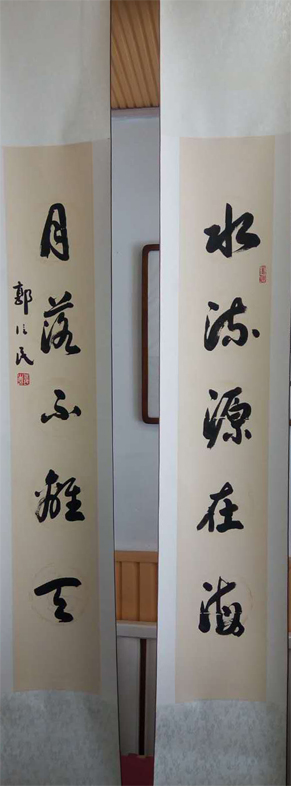 水流源在海
月落不离天
郭民